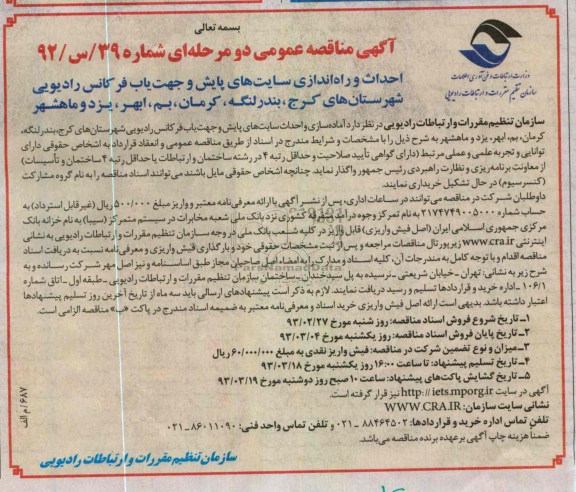 بسمه تعالی
آگهی مناقصه عمومی دو مرحله‌ای شماره ۳۹/س/۹۲
وزارت ارتباطات و فن‌آوری اطلاعات
سازمان تنظیم مقررات و ارتباطات رادیویی
احداث و راه‌اندازی سایت‌های پایش و جهت‌یاب فرکانس رادیویی
شهرستان‌های کرج، بندرلنگه، کرمان، بم، ابهر، یزد و ماهشهر
سازمان تنظیم مقررات و ارتباطات رادیویی در نظر دارد آماده‌سازی و احداث سایت‌های پایش و جهت‌یاب فرکانس رادیویی شهرستان‌های کرج، بندرلنگه،
کرمان، بم، ابهر، یزد و ماهشهر به شرح ذیل را با مشخصات و شرایط مندرج در اسناد از طریق مناقصه عمومی و انعقاد قرارداد به اشخاص حقوقی دارای
توانایی و تجربه علمی و عملی مرتبط (دارای گواهی تأیید صلاحیت و حداقل رتبه ۴ در رشته ساختمان و ارتباطات یا حداقل رتبه ۴ ساختمان و تأسیسات)
از معاونت برنامه‌ریزی و نظارت راهبردی رئیس جمهور واگذار نماید. چنانچه اشخاص حقوقی مایل باشند می‌توانند اسناد مناقصه را به نام گروه مشارکت
(کنسرسیوم) در حال تشکیل خریداری نمایند.
داوطلبان شرکت در مناقصه می‌توانند در ساعات اداری، پس از نشر آگهی با ارائه معرفی‌نامه معتبر و واریز مبلغ ۵۰۰/۰۰۰ ریال (غیر قابل استرداد) به
حساب شماره ۲۱۷۴۷۴۹۰۰۵۰۰۰ به نام تمرکز وجوه درآمد کشوری نزد بانک ملی شعبه مخابرات در سیستم متمرکز (سیبا) به نام خزانه بانک
مرکزی جمهوری اسلامی ایران (اصل فیش واریزی) قابل واریز در کلیه شعب بانک ملی در وجه سازمان تنظیم مقررات و ارتباطات رادیویی به نشانی
اینترنتی www.cra.ir زیر پورتال مناقصات مراجعه و پس از ثبت مشخصات حقوقی خود و بارگذاری فیش واریزی و معرفی‌نامه نسبت به دریافت اسناد
مناقصه اقدام و با توجه کامل به مندرجات آن، کلیه اسناد و مدارک را به امضاء اصل صاحبان مجاز طبق اساسنامه و نیز اصل مهر شرکت رسانده و به
شرح زیر به نشانی: تهران - خیابان شریعتی - نرسیده به پل سیدخندان - ساختمان سازمان تنظیم مقررات و ارتباطات رادیویی - طبقه اول - اتاق شماره
۱۰۶/۱ - اداره خرید و قراردادها تسلیم و رسید دریافت نمایند. لازم به ذکر است پیشنهادهای ارسالی باید سه ماه از تاریخ آخرین روز تسلیم پیشنهادها
اعتبار داشته باشد. بدیهی است ارائه اصل فیش واریزی خرید اسناد و معرفی‌نامه معتبر به ضمیمه اسناد مندرج در پاکت «ب» مناقصه الزامی است.
۱- تاریخ شروع فروش اسناد مناقصه: روز شنبه مورخ ۹۳/۰۲/۲۷
۲- تاریخ پایان فروش اسناد مناقصه: روز یکشنبه مورخ ۹۳/۰۳/۰۴
۳- میزان و نوع تضمین شرکت در مناقصه: فیش واریز نقدی به مبلغ ۶۰/۰۰۰/۰۰۰ ریال
۴- تاریخ تسلیم پیشنهاد: تا ساعت ۱۶:۰۰ روز یکشنبه مورخ ۹۳/۰۳/۱۸
۵- تاریخ گشایش پاکت‌های پیشنهاد: ساعت ۱۰ صبح روز دوشنبه مورخ ۹۳/۰۳/۱۹
آگهی در سایت http://iets.mporg.ir نیز قرار گرفته است.
نشانی سایت سازمان: WWW.CRA.IR
تلفن تماس اداره خرید و قراردادها: ۸۸۴۶۴۵۰۲-۰۲۱ و تلفن تماس واحد فنی: ۸۶۰۱۱۰۹۰-۰۲۱
ضمناً هزینه چاپ آگهی بر عهده برنده مناقصه می‌باشد.
سازمان تنظیم مقررات و ارتباطات رادیویی
۶۸۷/م الف